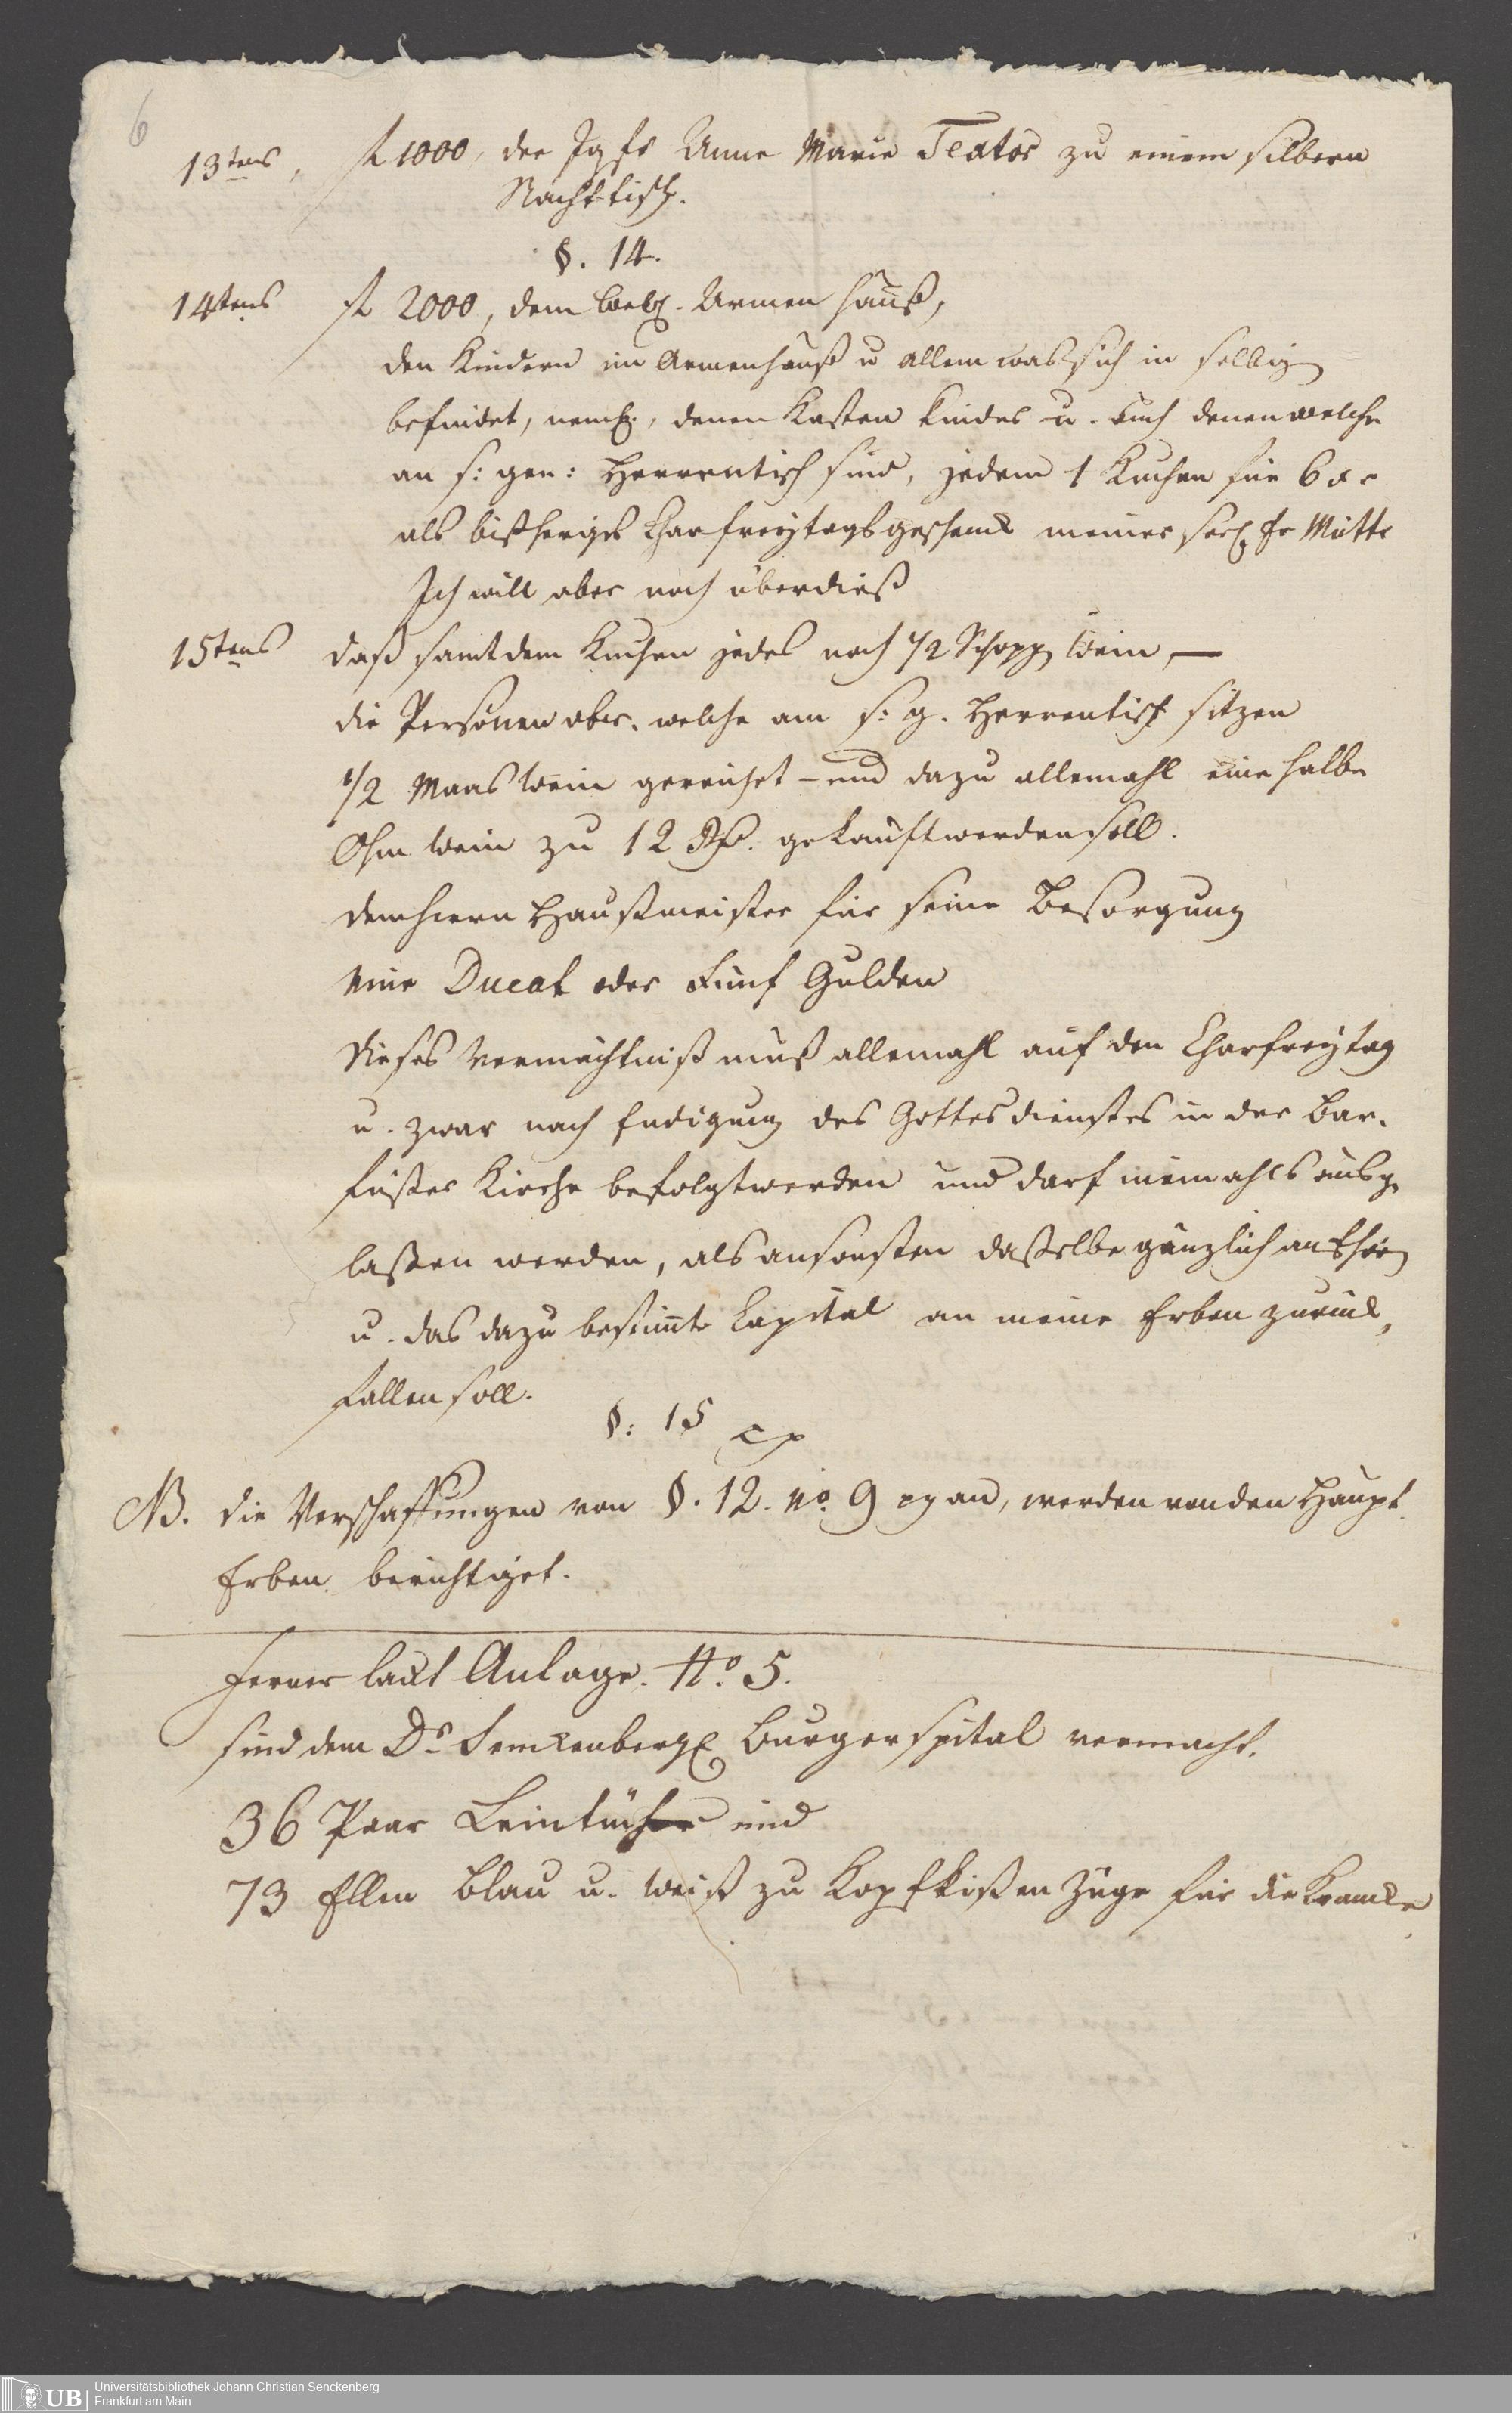 6
13tens, fl 1000, der Jgfr Anne Marie Textor zu einem silbern
Nachttisch.
§. 14.
14tens fl 2000, dem Armen Hauß,
den Kindern im Armenhauß u allem was sich in selbig
befindet, neml., denen Kasten Kinder u. auch denen welche
an s: gen: Herrentisch sind, jedem 1 Kuchen für 6 xr
als bißheriges Charfreytags geschenck meiner seel. Fr Mutter
Ich will aber noch überdieß
15tens daß samt dem Kuchen jedes noch 1/2 Schopp Wein —
die Personen aber, welche am s: g. Herrentisch sitzen
1/2 Maas Wein gereichet – und dazu allemahl eine halbe
Ohm Wein zu 12 gekauft werden soll.
dem Herrn Haußmeister für seine Besorgung
eine Ducat oder Fünf Gulden
Dieses Vermächtniß muß allemahl auf den Charfreytag
u. zwar nach Endigung des Gottesdienstes in der Bar-
füßer Kirche befolgt werden und darf niemahls ausge
laßen werden, als ansonsten daßelbe gänzlich aufhören
u. das dazu bestimte Capital an meine Erben zurück,
fallen soll.
§: 15
NB. die Verschaffungen von §. 12. No. 9 an, werden von den Haupt
Erben berichtiget.
Ferner laut Anlage. No. 5.
sind dem Dr Senckenbergl Burgerspital vermacht.
36 Paar Leintücher und
73 Ellen blau u. weiß zu Kopfkißen Züge für die Krancke
UB Universitätsbibliothek Johann Christian Senckenberg
Frankfurt am Main